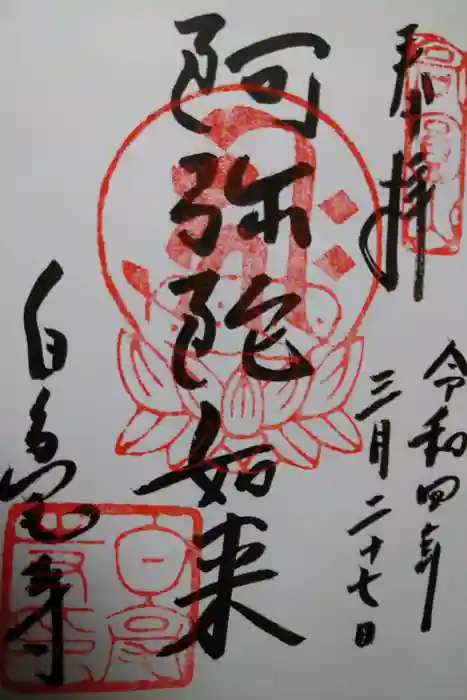 奉拝
令和四年
三月二十七日
阿弥陀如来
白毫寺
白毫